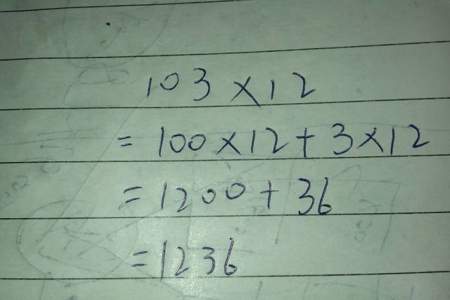 103×12
=100×12+3×12
=1200+36
=1236